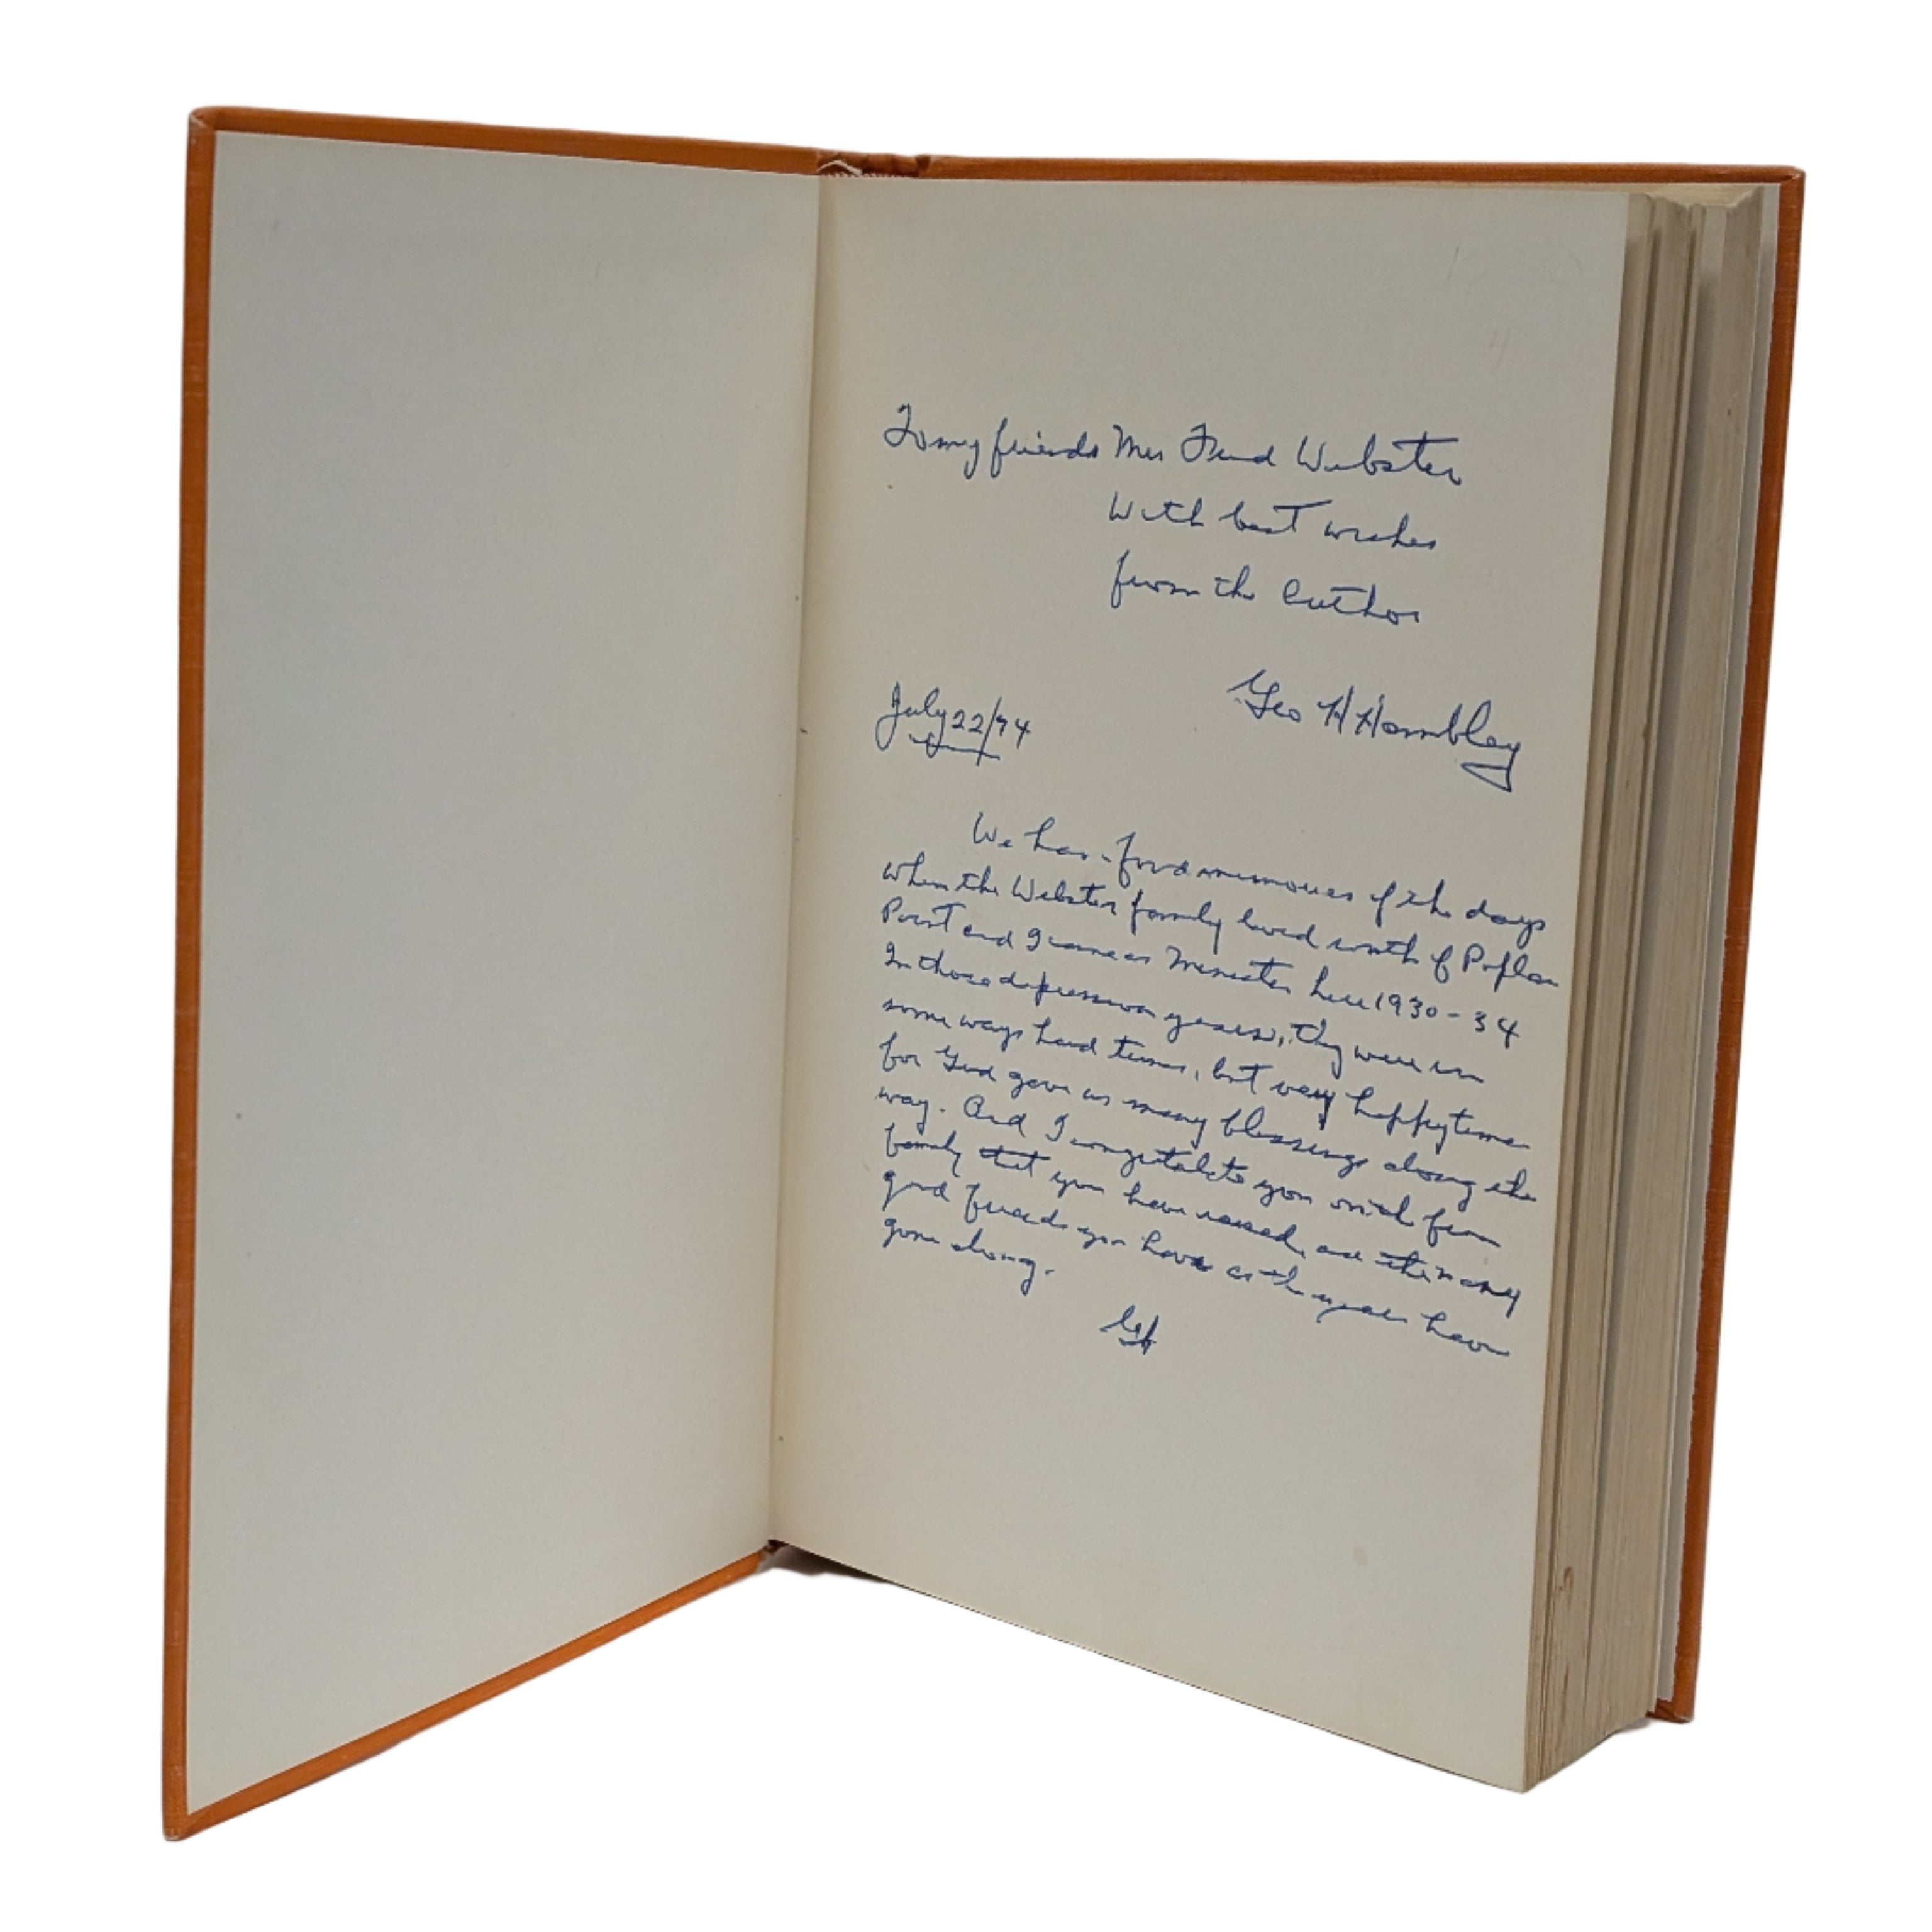 To my friends Mrs Fred Webster
With best wishes
from the Author
Geo H Hambley
July 22/74
We have fond memories of the days
when the Webster family lived north of Poplar
Point and I came as Minister here 1930-34
In those depression years, they were in
some ways hard times, but very happy times
for God gave us many blessings along the
way. And I congratulate you on the fine
family that you have raised, and the many
good friends you have as the years have
gone along.
GH